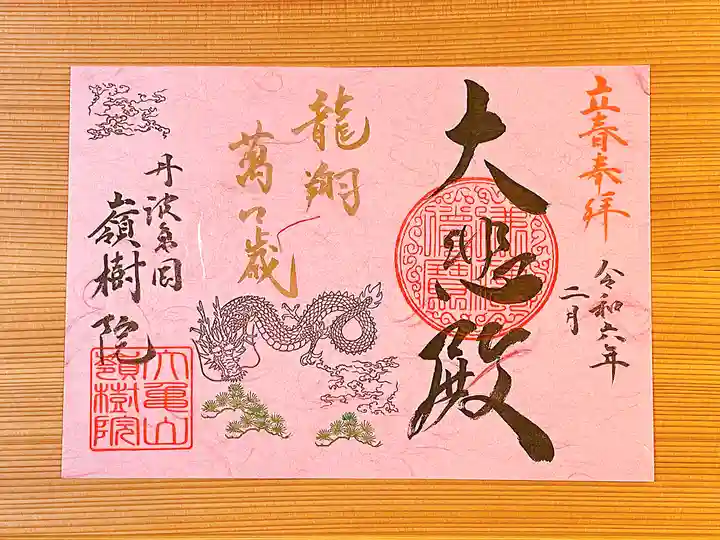 立春奉拝
令和六年
二月
大悲殿
龍翔
萬歳
丹波亀岡
嶺樹院
六亀山
嶺樹院